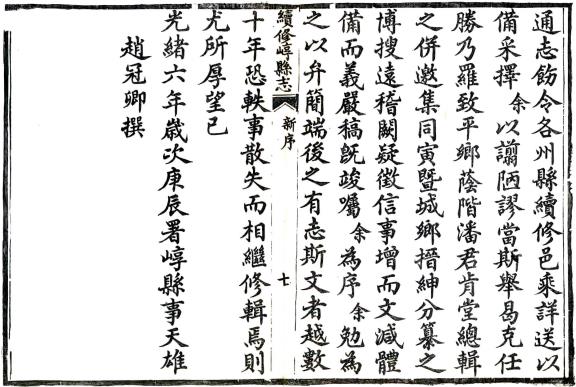 通志飭令各州縣續修邑乘詳送以
備采擇余以譾陋謬當斯舉曷克任
勝乃羅致平鄉蔭階潘君肯堂總輯
之併邀集同寅暨城鄉搢紳分纂之
博搜遠稽闕疑徵信事增而文減體
備而義嚴稿既竣囑余為序余勉為
之以弁簡端後之有志斯文者越數
續修崞縣志 新序 七
十年恐軼事散失而相繼修輯焉則
尤所厚望已
光緒六年歲次庚辰署崞縣事天雄
趙冠卿撰